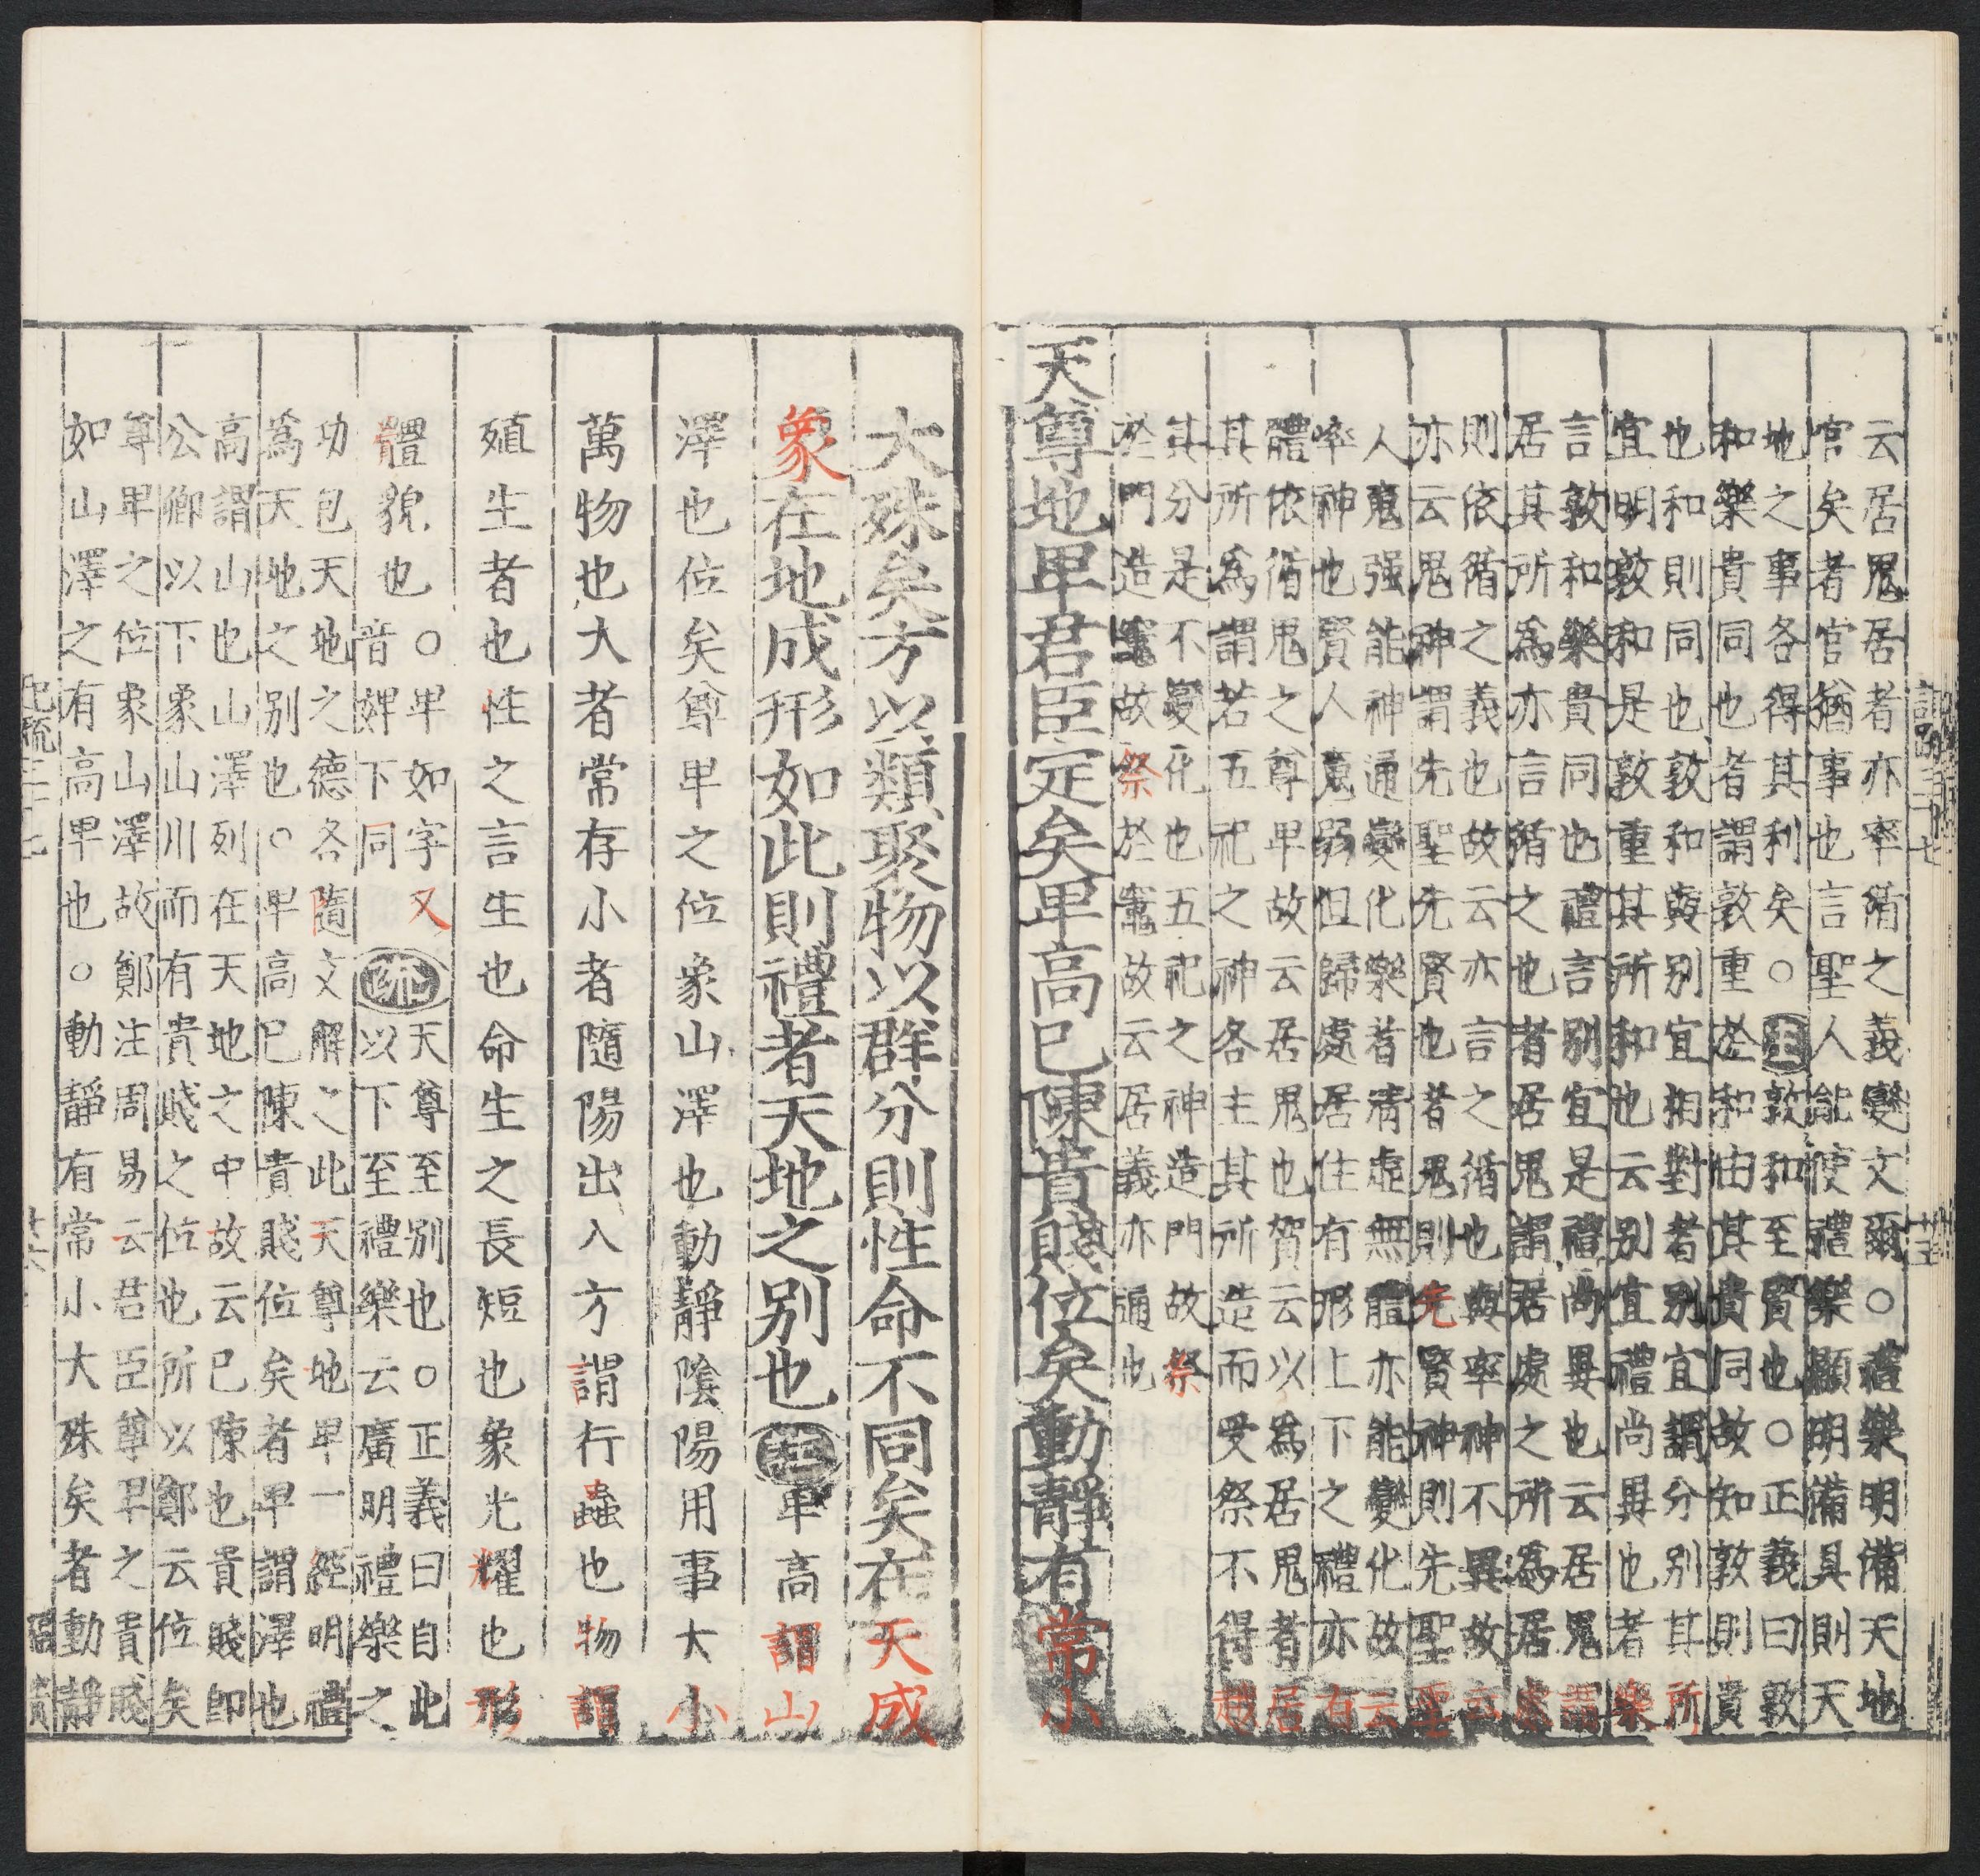 云居鬼居者亦率循之義變文爾○禮樂明備天地
官矣者官猶事也言聖人能使禮樂顯明備具則天
地之事各得其利矣○注敦和至賢也○正義曰敦
和樂貴同也者謂敦重於和由其貴同故知敦則貴
也和則同也敦和與別宜相對者別宜謂分別其所
宜明敦和是敦重其所和也云別宜禮尚異也者樂
言敦和樂貴同也禮言別宜是禮尚異也云居鬼謂
居其所為亦言循之也者居鬼謂居處之所為居處
則依循之義也故云亦言之循也與率神不異故云
亦云鬼神謂先聖先賢也者鬼則先賢神則先聖聖
人魂强能神通變化樂者清虛無體亦能變化故云
率神也賢人魂弱但歸處居住有形上下之禮亦有
體依循鬼之尊卑故云居鬼也賀云以爲居鬼者居
其所爲謂若五祀之神各主其所造而受祭不得越
其分是不變化也五祀之神造門故祭
於門造竈故祭於竈故云居義亦通也
天尊地卑君臣定矣卑高已陳貴賤位矣動靜有常小
大殊矣方以類聚物以群分則性命不同矣在天成
象在地成形如此則禮者天地之別也注卑高謂山
澤也位矣尊卑之位象山澤也動靜陰陽用事大小
萬物也大者常存小者隨陽出入方謂行蟲也物謂
殖生者也性之言生也命生之長短也象光耀也形
體貌也○卑如字又
音婢下同
疏
天尊至別也○正義曰自此
以下至禮樂云廣明禮樂之
功包天地之德各隨文解之此天尊地卑一經明禮
爲天地之別也○卑高已陳貴賤位矣者卑謂澤也
高謂山也山澤列在天地之中故云已陳也貴賤即
公卿以下象山川而有貴賤之位也所以鄭云位矣
尊卑之位象山澤故鄭注周易云君臣尊卑之貴賤
如山澤之有高卑也○動靜有常小大殊矣者動靜